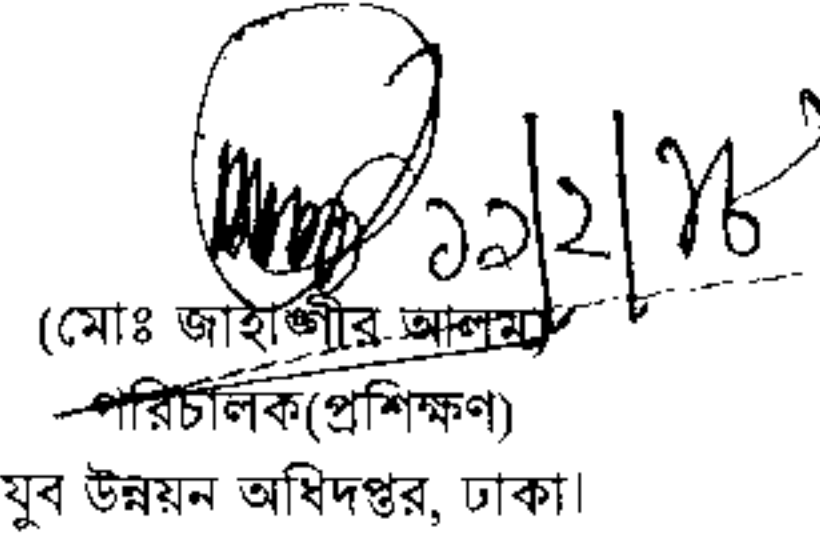 ১১/২/
(মোঃ জাহাঙ্গীর আলম)
পরিচালক(প্রশিক্ষণ)
যুব উন্নয়ন অধিদপ্তর, ঢাকা।